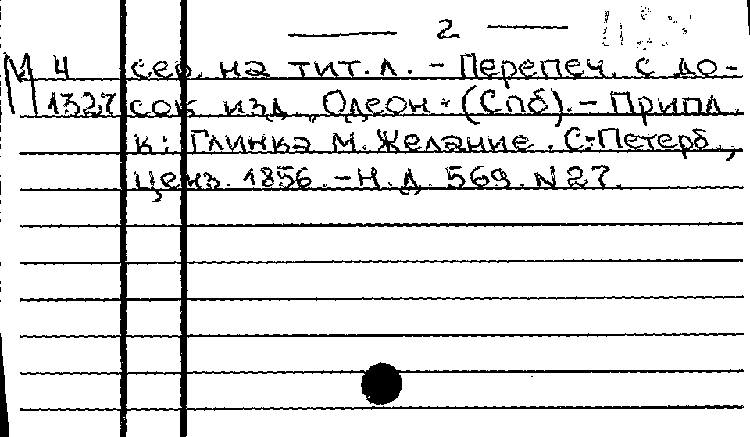 — 2 —
М 4 сер. на тит.л. – Перепеч. с до-
1327 сок изд. „Одеон“ (Спб). – Припл.
к: Глинка М. Желание. С.-Петерб.,
ценз. 1856. – Н.д. 569. N 27.